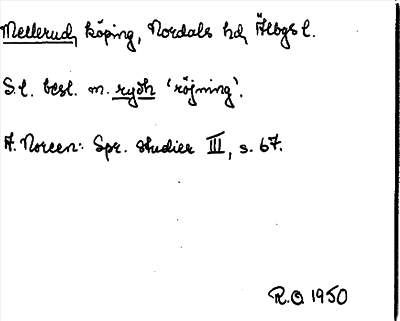 Mellerud, köping, Nordals hd, Älvbgs l.
S.l. besl. m. rydh 'röjning'.
A. Noreen: Spr. studier III, s. 67.
R.O 1950